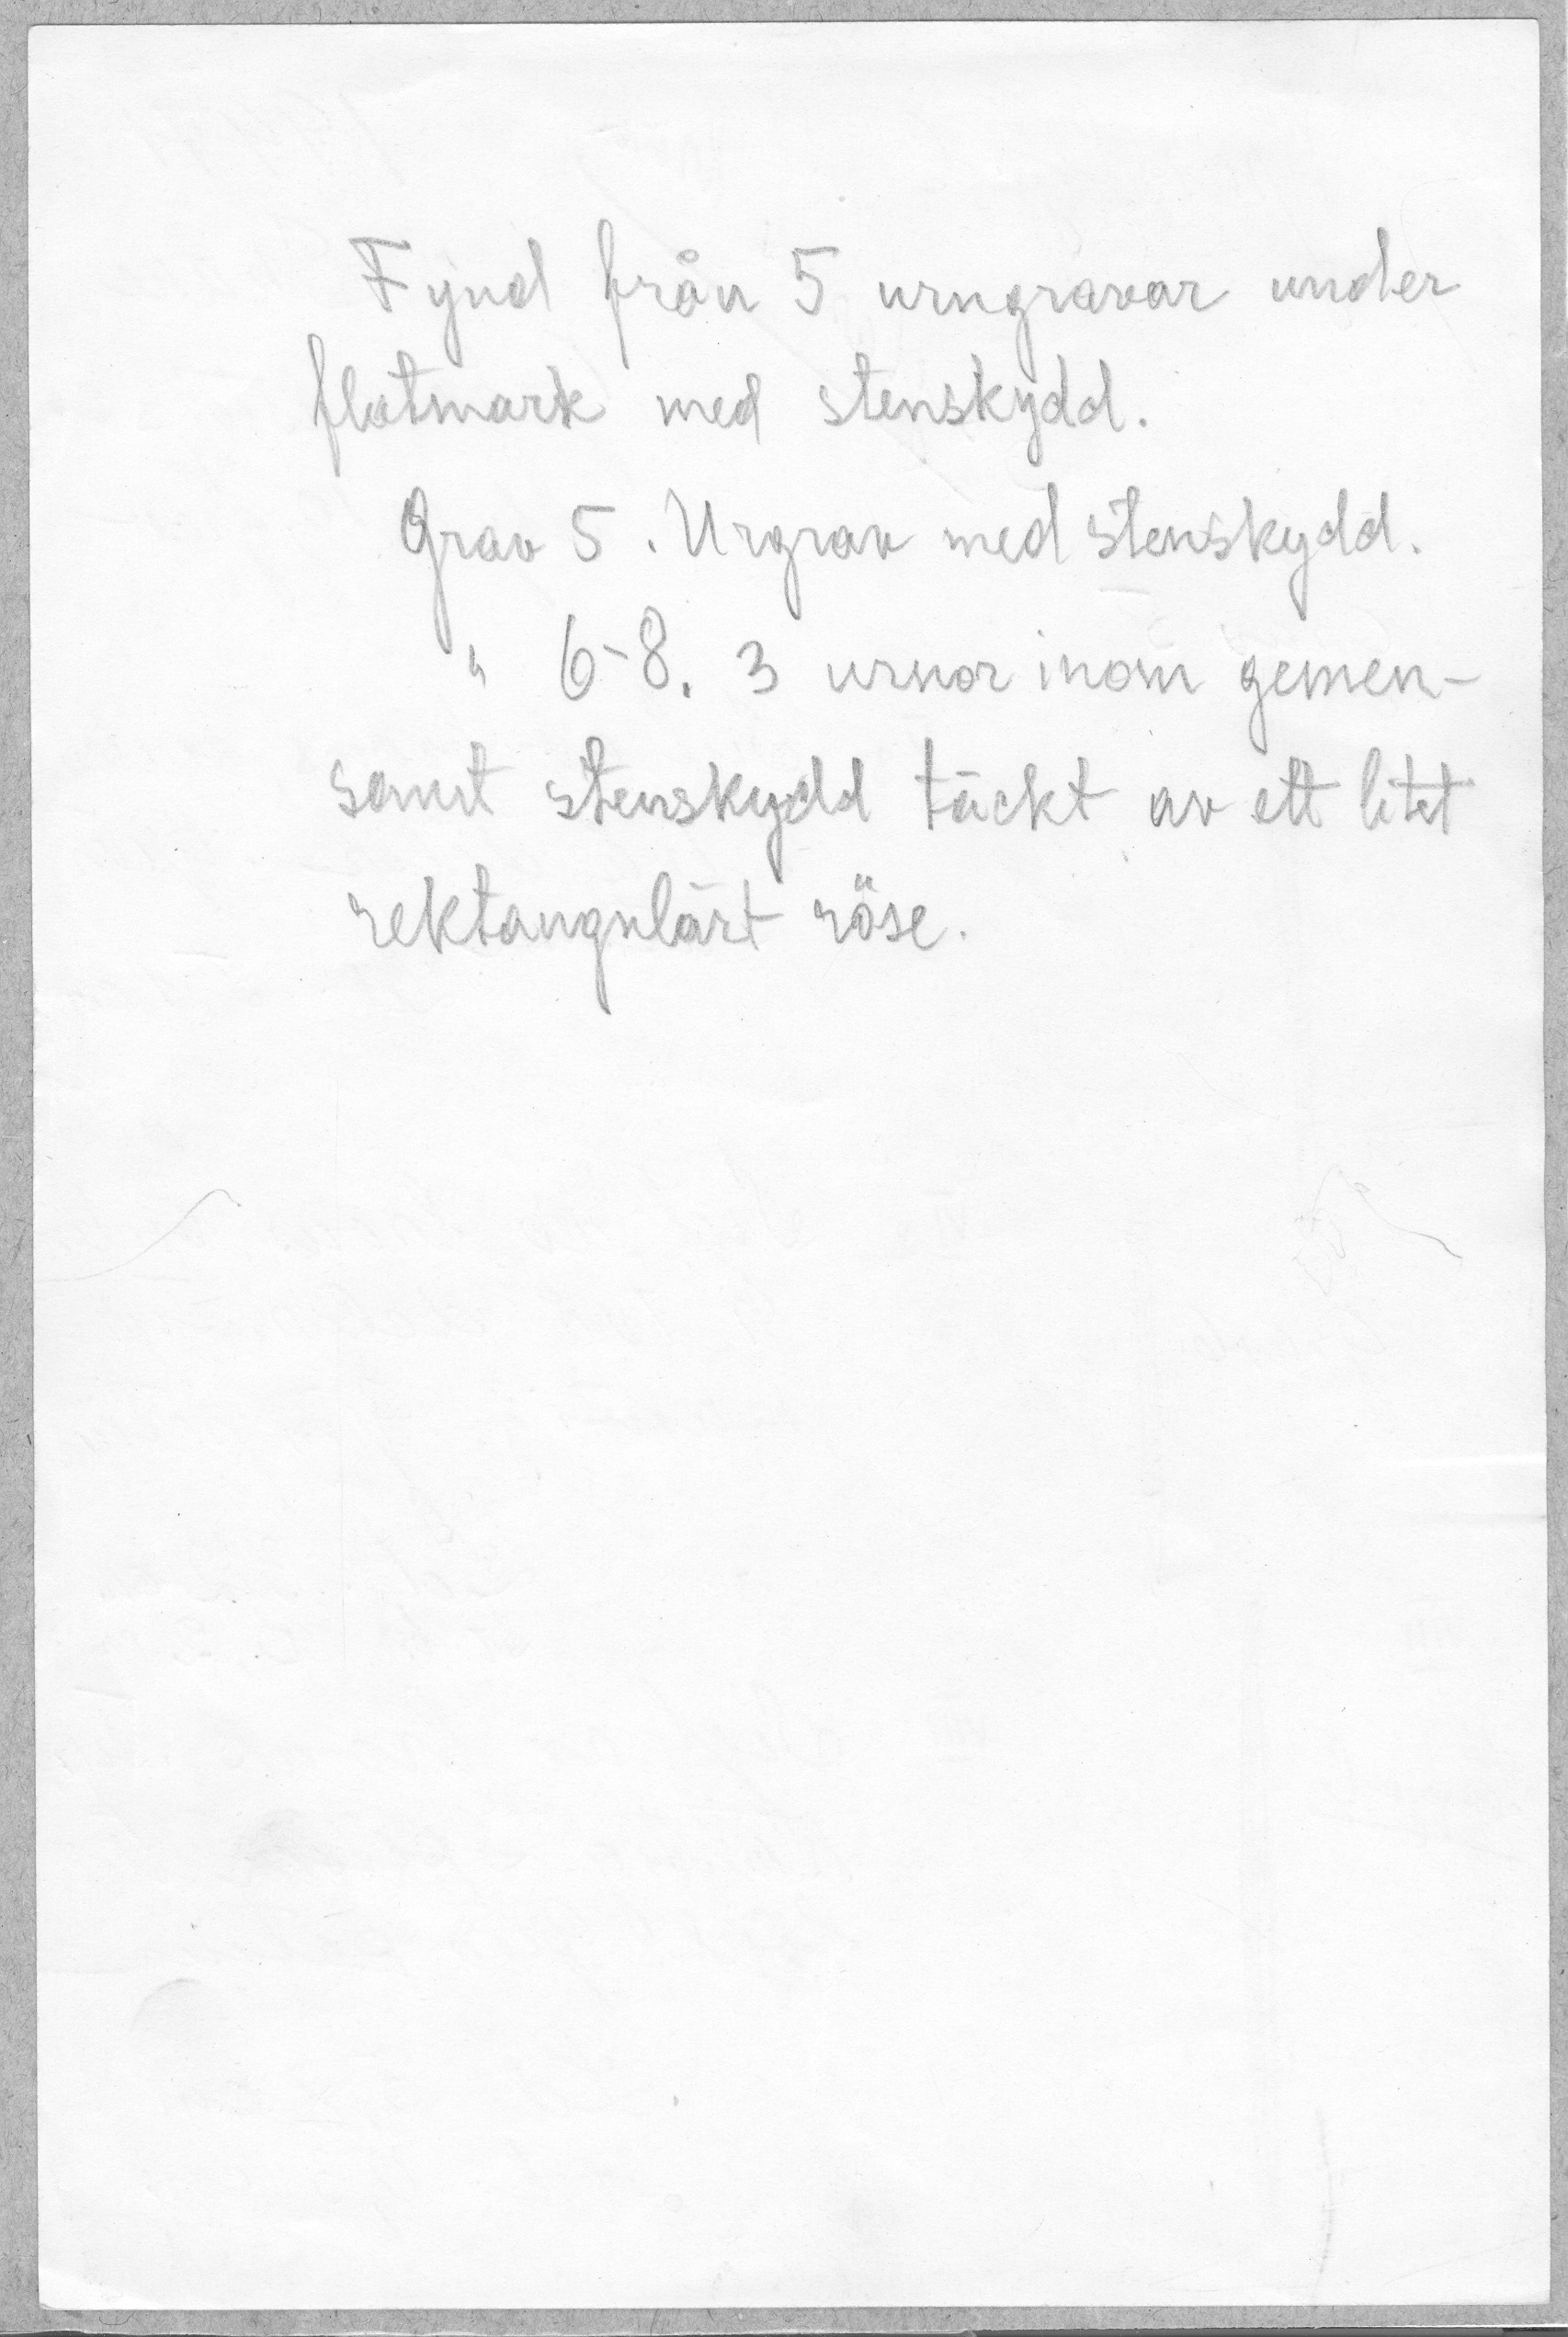 Fynd från 5 urngravar under
flatmark med stenskydd.
Grav 5. Urgrav med stenskydd.
" 6-8. 3 urnor inom gemen-
samt stenskydd täckt av ett litet
rektangulärt röse.